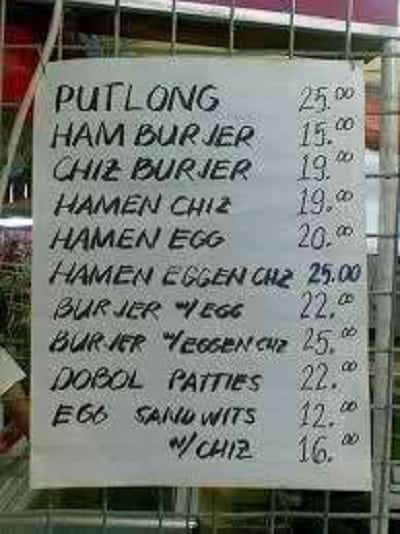 PUTLONG 25.00
HAM BURJER 15.00
CHIZ BURJER 19.00
HAMEN CHIZ 19.00
HAMEN EGG 20.00
HAMEN EGGEN CHZ 25.00
BURJER W/EGG 22.00
BURJER W/EGGEN CHZ 25.00
DOBOL PATTIES 22.00
EGG SANDWITS 12.00
W/CHIZ 16.00